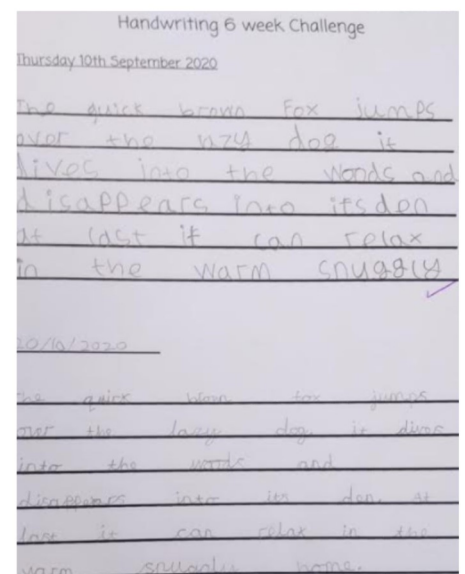 Handwriting 6 week Challenge
Thursday 10th September 2020
The quick brown Fox jumps
over the nzy dog it
dives into the woods and
disappears into itsden
at last it can relax
in the warm snuggly
20/10/2020
The quick brown fox jumps
over the lazy dog. it dives
into the woods and
disappears into its den. at
last it can relax in the
warm snuggly home.